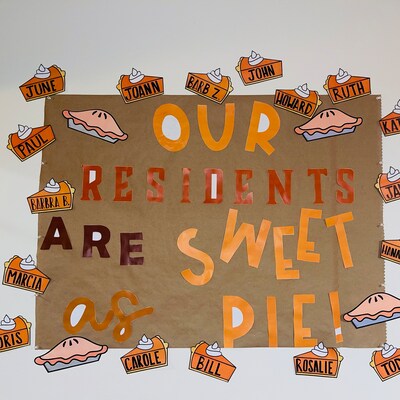 JUNE
JOANN
BARB Z.
JOHN
HOWARD
RUTH
PAUL
BARBARA B.
MARCIA
CAROLE
BILL
ROSALIE
OUR
RESIDENTS
ARE SWEET
as PIE!